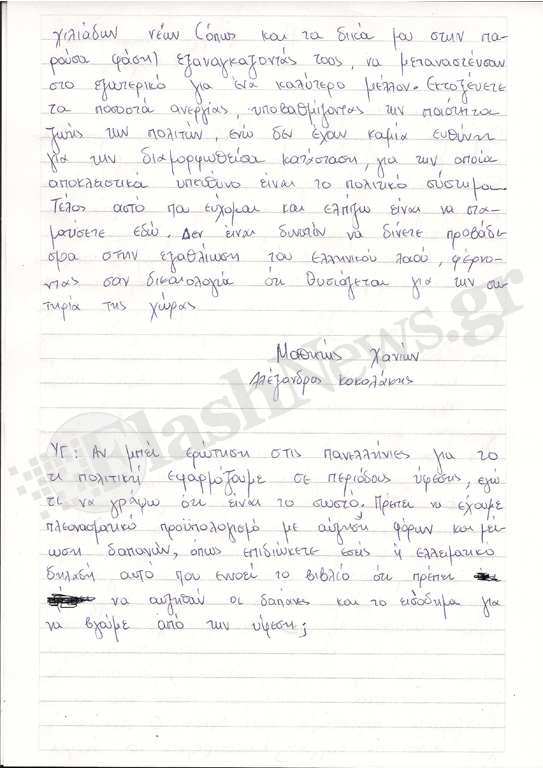 χιλιάδων νέων (όπως και τα δικά μου στην πα-
ρούσα φάση) εξαναγκαζοντάς τους, να μεταναστεύσουν
στο εξωτερικό για ένα καλύτερο μέλλον. Εκτοξεύετε
τα ποσοστά ανεργίας, υποβαθμίζοντας την ποιότητα
ζωής των πολιτών, ενώ δεν έχουν καμία ευθύνη
για την διαμορφωθείσα κατάσταση, για την οποία
αποκλειστικά υπεύθυνο είναι το πολιτικό σύστημα.
Τέλος αυτό πα εύχομαι και ελπίζω είναι να στα-
ματήσετε εδώ. Δεν είναι δυνατόν να δίνετε προβάδι-
σμα στην εξαθλίωση του Ελληνικού λαού, φέρνο-
ντας σαν δικαιολογία ότι θυσιάζεται για την σω-
τηρία της χώρας
Μαθητής Χανίων
Αλέξανδρος Κοκολάκης
FlashNews.gr
ΥΓ: Αν μπεί ερώτηση στις πανελλήνιες για το
τι πολιτική εφαρμόζουμε σε περιόδους ύφεσης, εγώ
τι να γράψω ότι είναι το σωστό. Πρέπει να έχουμε
πλεονασματικό προϋπολογισμό με αύξηση φόρων και μεί-
ωση δαπανών, όπως επιδιώκετε εσείς ή ελλειματικό
δηλαδή αυτό που εννοεί το βιβλίο ότι πρέπει
να αυξηθούν οι δαπάνες και το εισόδημα για
να βγούμε από την ύφεση;